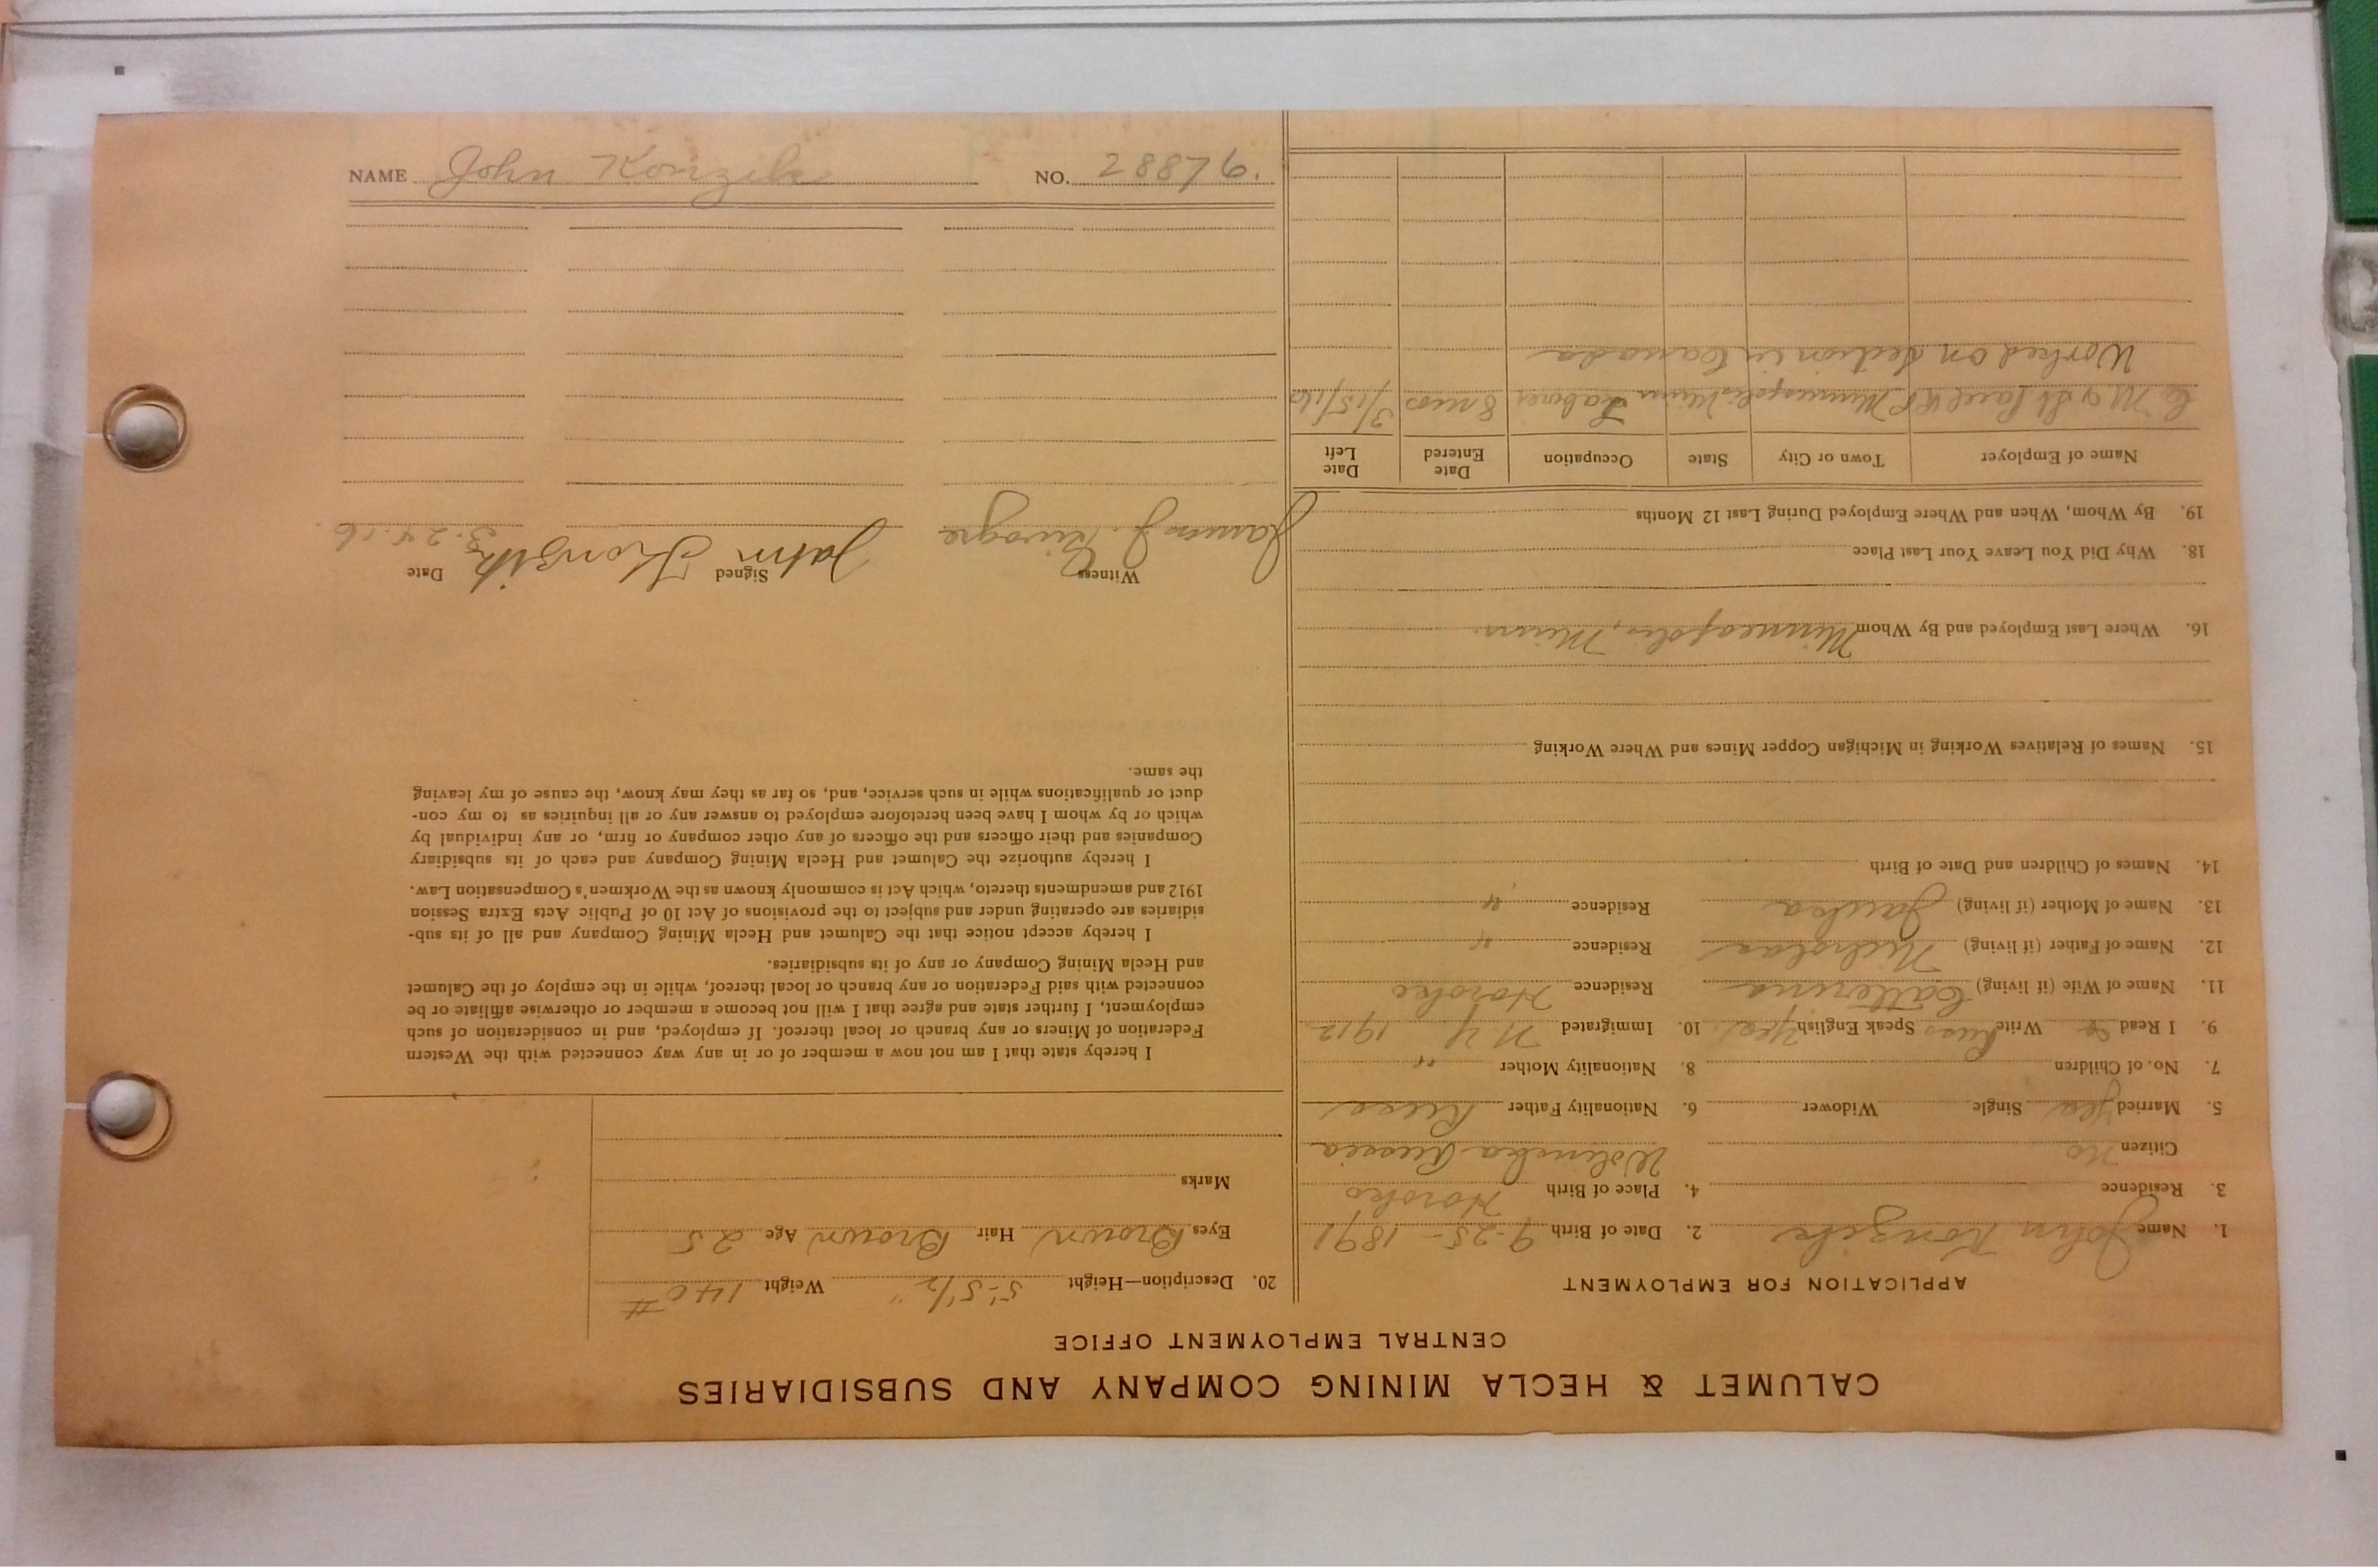 CALUMET & HECLA MINING COMPANY AND SUBSIDIARIES
CENTRAL EMPLOYMENT OFFICE
APPLICATION FOR EMPLOYMENT
1. Name John Konzik 2. Date of Birth 9-25-1891
3. Residence 4. Place of Birth Horsko
Citizen No Wolinska Russia
5. Married Yes Single Widower 6. Nationality Father Russ
7. No. of Children 8. Nationality Mother "
9. I Read & Write Russ Speak English Yes 10. Immigrated N.Y. 1912
11. Name of Wife (if living) Catterina Residence Horsko
12. Name of Father (if living) Nicholas Residence "
13. Name of Mother (if living) Residence "
14. Names of Children and Date of Birth
15. Names of Relatives Working in Michigan Copper Mines and Where Working
16. Where Last Employed and By Whom Minneapolis, Minn.
18. Why Did You Leave Your Last Place
19. By Whom, When and Where Employed During Last 12 Months
Name of Employer Town or City State Occupation Date Entered Date Left
C. M. & St Paul Minneapolis Minn Laborer 8 mos 3/15/16
Worked on Section in Canada
20. Description—Height 5'-5 1/2" Weight 140 #
Eyes Brown Hair Brown Age 25
Marks
I hereby state that I am not now a member of or in any way connected with the Western
Federation of Miners or any branch or local thereof. If employed, and in consideration of such
employment, I further state and agree that I will not become a member or otherwise affiliate or be
connected with said Federation or any branch or local thereof, while in the employ of the Calumet
and Hecla Mining Company or any of its subsidiaries.
I hereby accept notice that the Calumet and Hecla Mining Company and all of its sub-
sidiaries are operating under and subject to the provisions of Act 10 of Public Acts Extra Session
1912 and amendments thereto, which Act is commonly known as the Workmen's Compensation Law.
I hereby authorize the Calumet and Hecla Mining Company and each of its subsidiary
Companies and their officers and the officers of any other company or firm, or any individual by
which or by whom I have been heretofore employed to answer any or all inquiries as to my con-
duct or qualifications while in such service, and, so far as they may know, the cause of my leaving
the same.
Witness Signed Date
James J. John 3-24-16
NAME John Konzik NO. 28876.